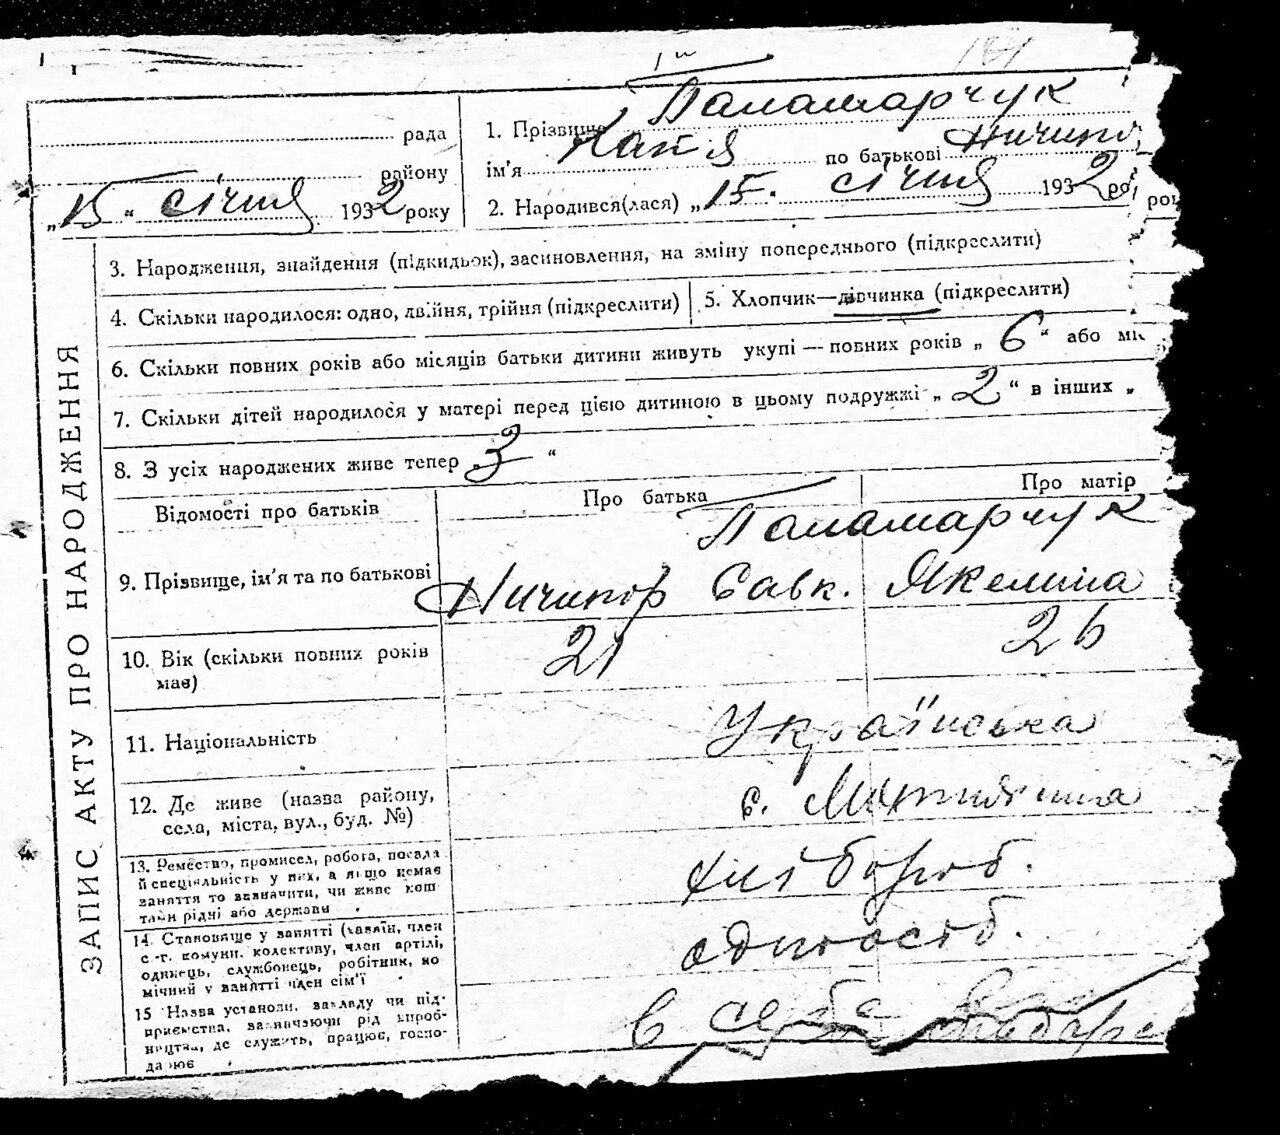 1й
Паламарчук
рада
1. Прізвище
району
ім'я Катя по батькові Ничипо
„15“ січня 1932 року
2. Народився(лася) „15. січня 1932 ро
рок
3. Народження, знайдення (підкидьок), засиновлення, на зміну попереднього (підкреслити)
4. Скільки народилося: одно, двійня, трійня (підкреслити)
5. Хлопчик—дівчинка (підкреслити)
6. Скільки повних років або місяців батьки дитини живуть укупі — повних років „6“ або міс
7. Скільки дітей народилося у матері перед цією дитиною в цьому подружжі „2“ в інших „
8. З усіх народжених живе тепер „3“
ЗАПИС АКТУ ПРО НАРОДЖЕННЯ
Відомості про батьків
Про батька
Про матір
Паламарчук
9. Прізвище, ім'я та по батькові
Ничипор Савк. Якелина
10. Вік (скільки повних років
має)
21
26
11. Національність
Українська
12. Де живе (назва району,
села, міста, вул., буд. №)
с.
13. Ремество, промисел, робота, посада
й спеціяльність у них, а якщо немає
заняття то зазначити, чи живе кош
тами рідні або держави
хлібороб.
14. Становище у занятті (хазяїн, член
с.-г. комуни, колективу, член артілі,
одинець, службовець, робітник, по
мічний у занятті член сім'ї
одноосіб.
15 Назва установи, закладу чи під-
приємства, зазначаючи рід вироб-
ництва, де служить, працює, госпо-
дарює
в себе